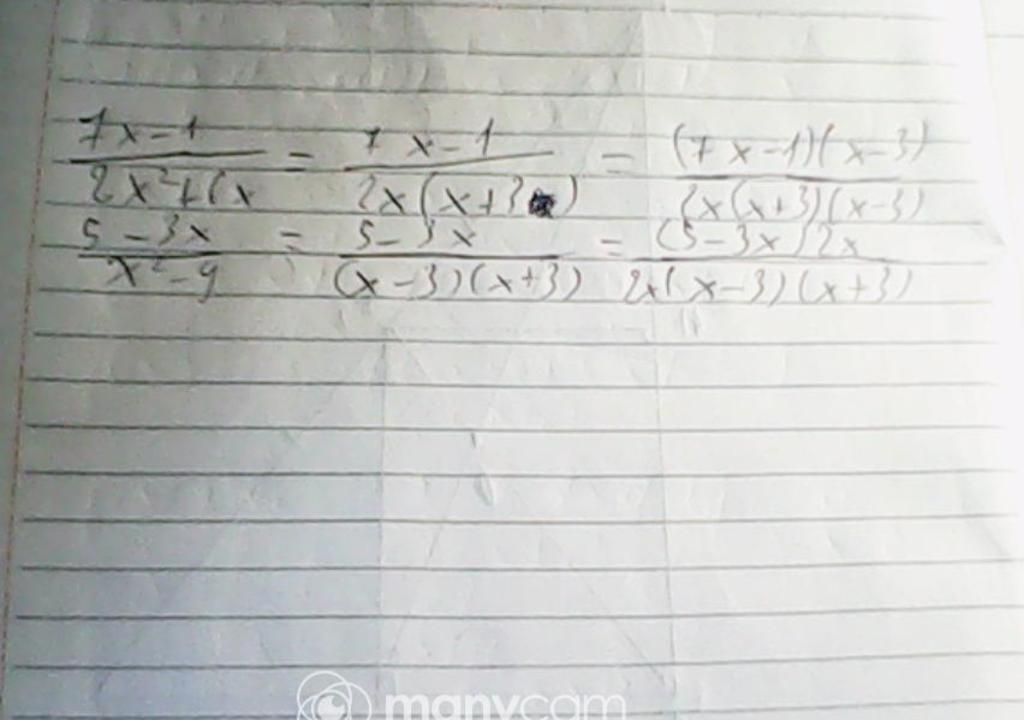 7x-1/2x²+6x = 7x-1/2x(x+3) = (7x-1)(x-3)/2x(x+3)(x-3)
5-3x/x²-9 = 5-3x/(x-3)(x+3) = (5-3x)2x/2x(x-3)(x+3)
manycam